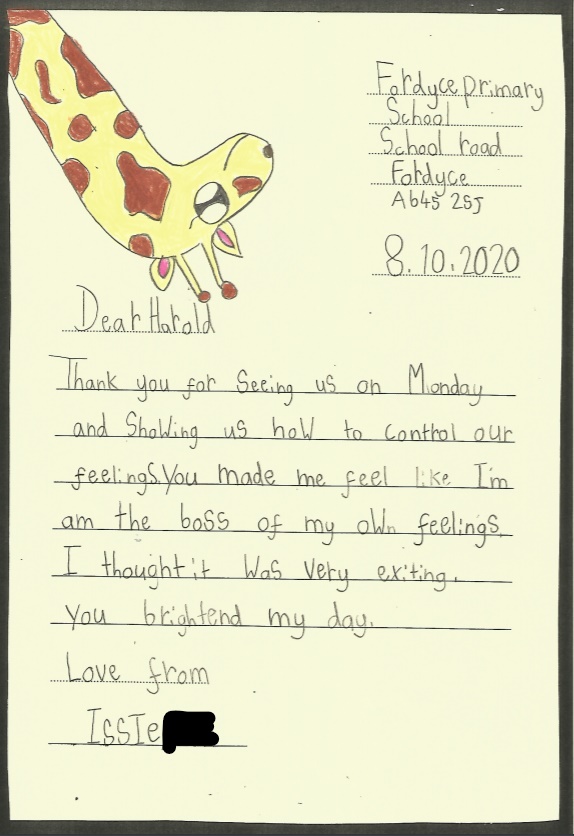 Fordyce primary
School
School road
Fordyce
Ab45 2SJ
8.10.2020
Dear Harold
Thank you for Seeing us on Monday
and Showing us how to control our
feelings.You made me feel like I'm
am the boss of my own feelings.
I thought it was very exiting.
You brightend my day.
Love from
Issie